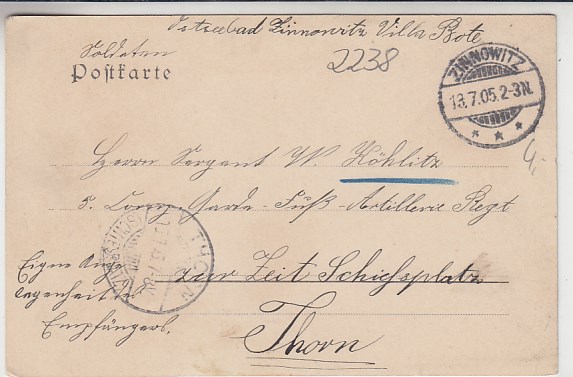 Ostseebad Zinnowitz Villa Bote
Soldaten
Postkarte
2238
ZINNOWITZ
13.7.05.2-3N.
4,-
Herrn Sergant W. Köhlitz
5. Comp. Garde-Fuß-Artillerie Regt
THORN
SCHIESSPLATZ
Eigene Ange-
zur Zeit Schießplatz
legenheit des
Empfängers.
Thorn